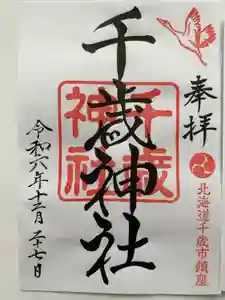 奉拝
北海道千歳市鎮座
千歳神社
千歳神社
令和六年十二月二十七日